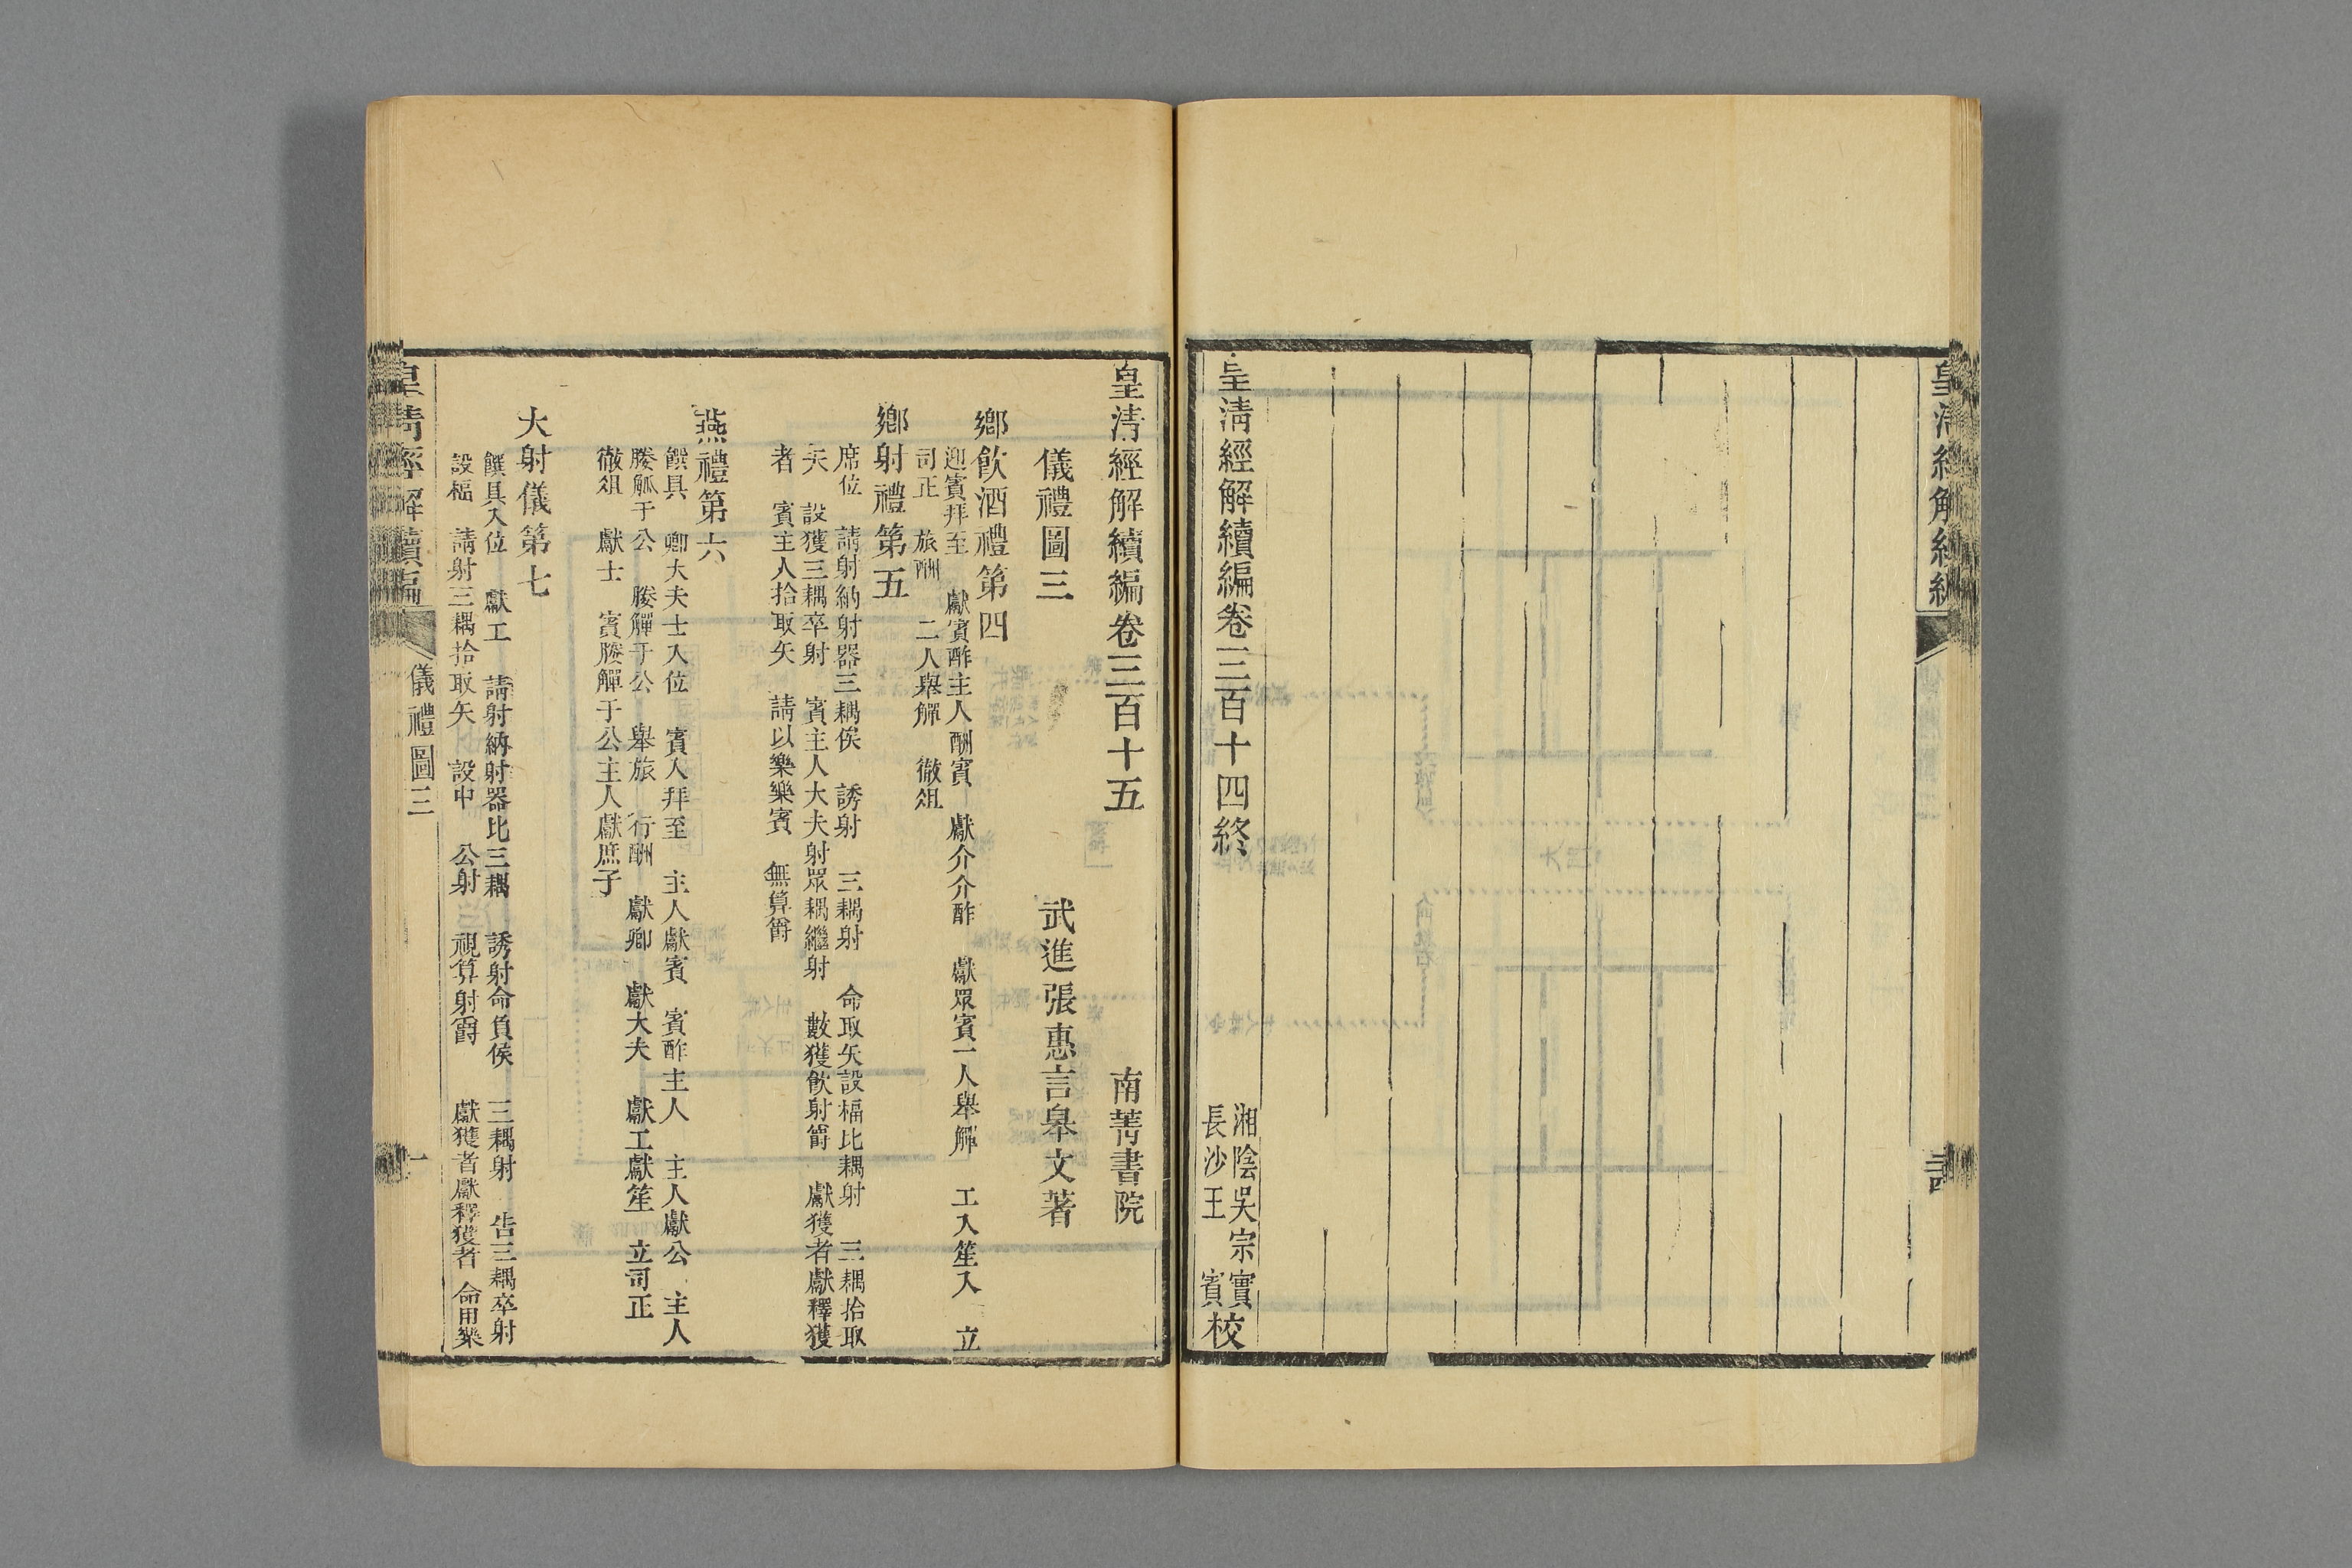 皇清經解續編
皇清經解續編卷三百十四終
湘陰吳宗實
長沙王 賓
校
皇清經解續編卷三百十五 南菁書院
儀禮圖三 武進張惠言皋文著
鄉飲酒禮第四
迎賓拜至 獻賓酢主人酬賓 獻介介酢 獻眾賓一人舉觶 工入笙入 立
司正 旅酬 二人舉觶 徹俎
鄉射禮第五
席位 請射納射器三耦俟 誘射 三耦射 命取矢設楅比耦射 三耦拾取
矢 設獲三耦卒射 賓主人大夫射眾耦繼射 數獲飲射爵 獻獲者獻釋獲
者 賓主人拾取矢 請以樂樂賓 無算爵
燕禮第六
饌具 卿大夫士入位 賓入拜至 主人獻賓 賓酢主人 主人獻公 主人
媵觚于公 媵觶于公 舉旅 行酬 獻卿 獻大夫 獻工獻笙 立司正
徹俎 獻士 賓媵觶于公主人獻庶子
大射儀第七
饌具入位 獻工 請射納射器比三耦 誘射命負侯 三耦射 告三耦卒射
設楅 請射三耦拾取矢 設中 公射 視算射爵 獻獲者獻釋獲者 命用樂
皇清經解續編 儀禮圖三 一